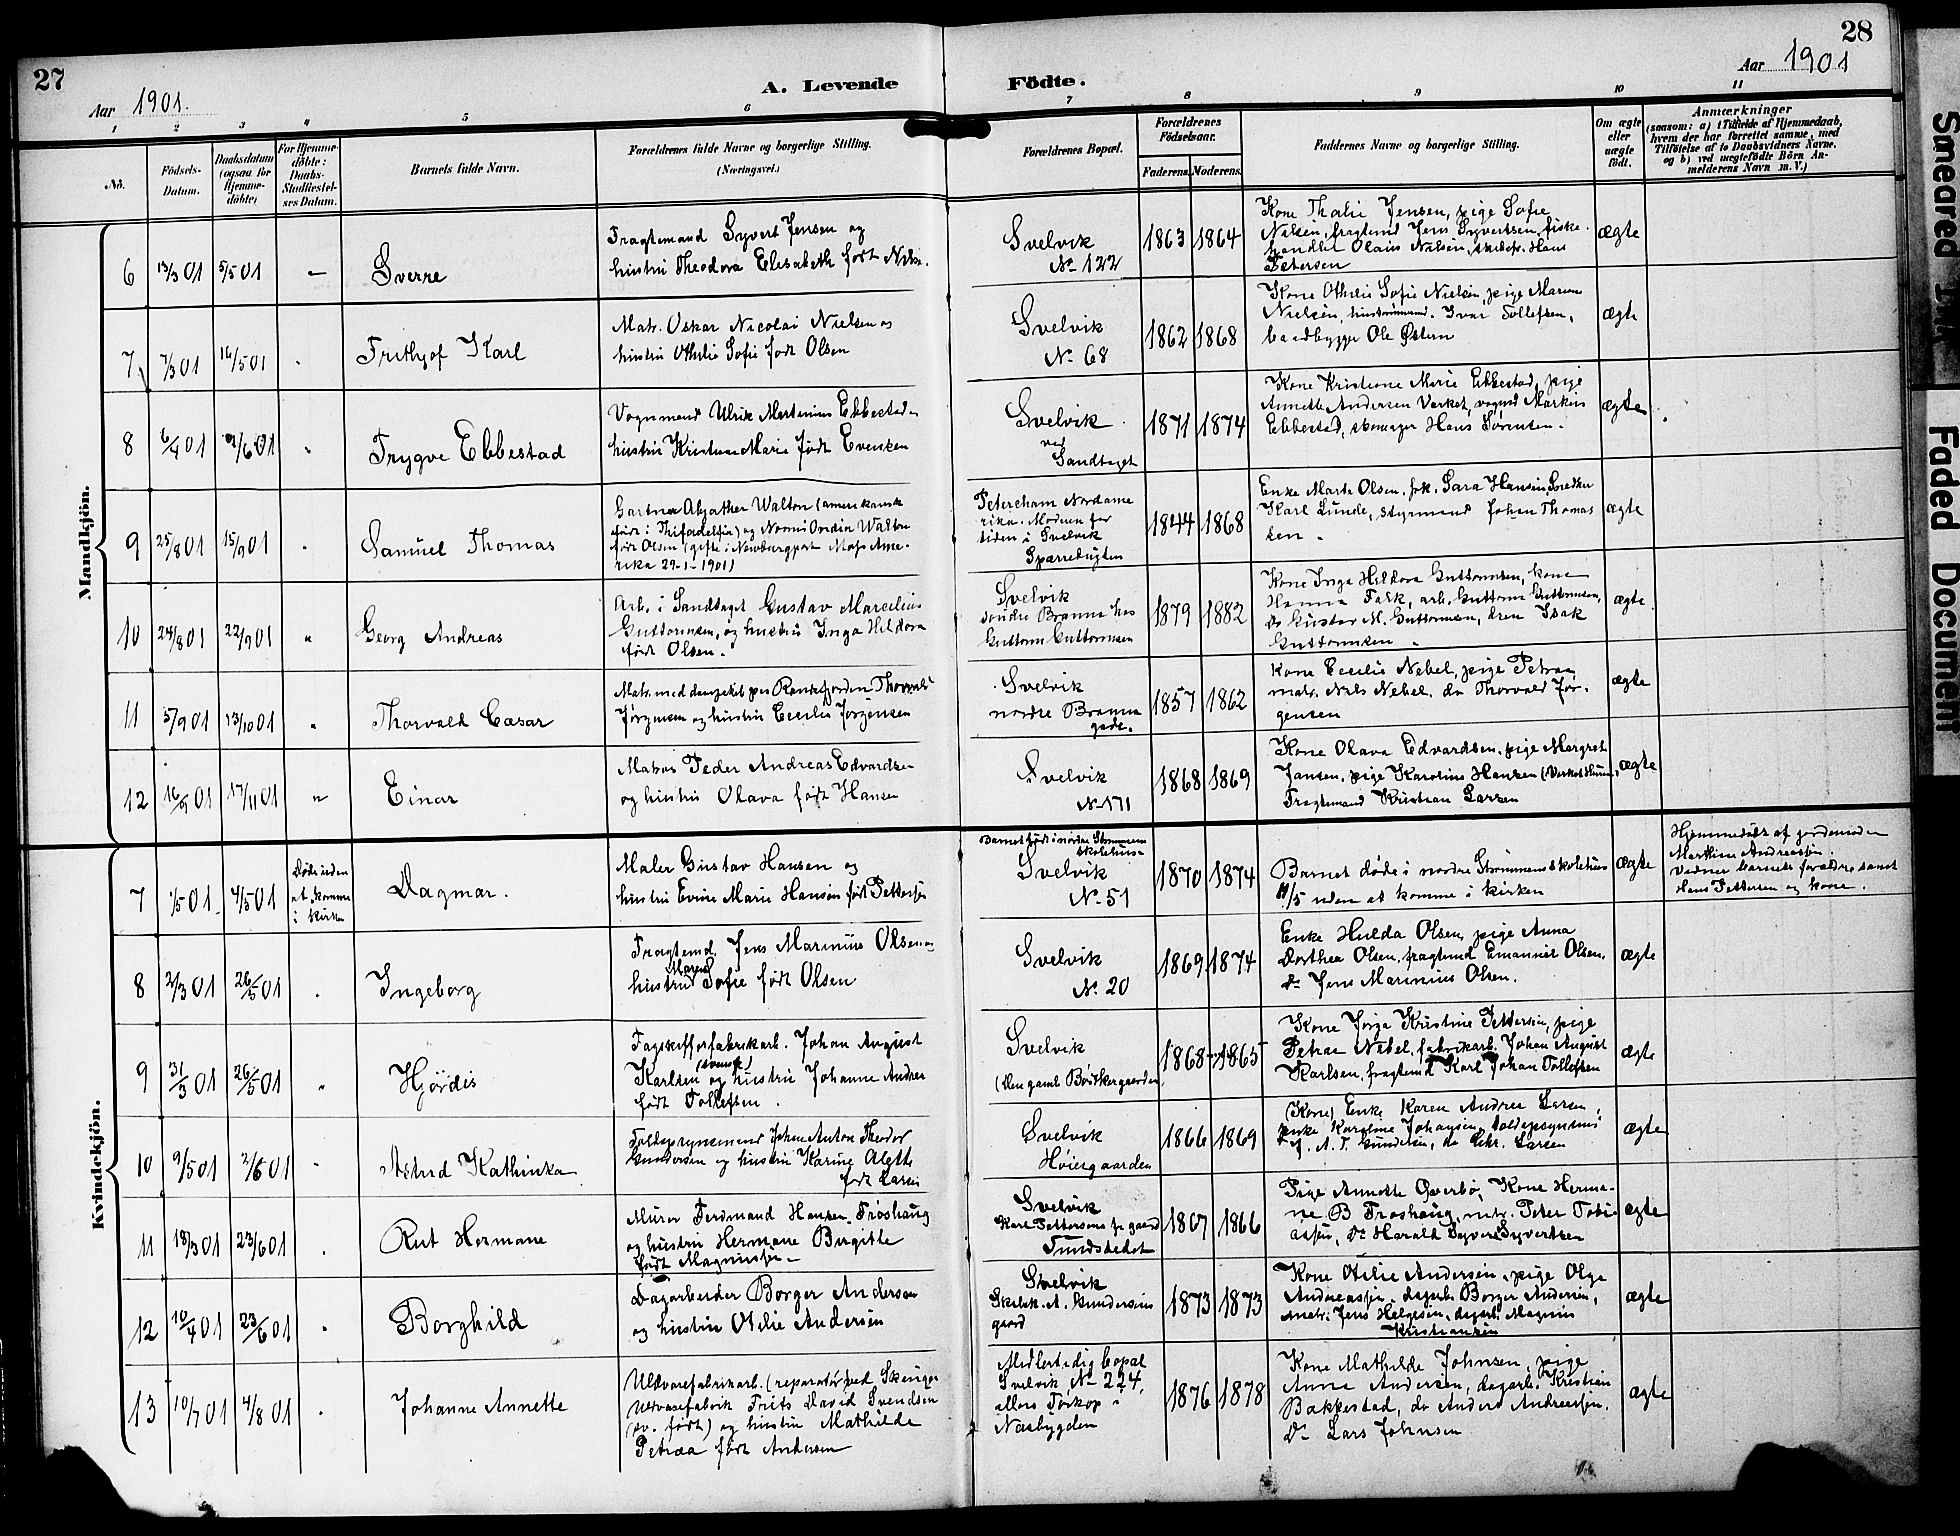 27
Aar 1901.
A. Levende
Födte.
28
Aar 1901
1 2 3 4 5 6 7 8 9 10 11
No.
Födsels-
Datum.
Daabsdatum
(ogsaa for
Hjemme-
døbte)
For Hjemme-
døbte:
Daabs-
Stadfæstel-
ses Datum.
Barnets fulde Navn.
Forældrenes fulde Navne og borgerlige Stilling.
(Næringsvei.)
Forældrenes Bopæl.
Forældrenes
Fødselsaar.
Faderens. Moderens.
Faddernes Navne og borgerlige Stilling.
Om ægte
eller
uægte
født.
Anmærkninger
(saasom: a) i Tilfælde af Hjemmedaab,
hvem der har forrettet samme, med
Tilføielse af to Daabsvidners Navne.
og b) ved uægtefødte Börn An-
melderens Navn m. V.)
Mandkjön.
6 13/3 01 5/5 01 —
Sverre
Fragtemand Syvert Jensen og
hustru Theodora Elisabeth født Nils.
Svelvik
No 122
1863 1864
Kone Thalie Jensen, pige Sofie
Nilsen, fragtmd Jens Syvertsen, fiske-
handler Olaus Nilsen, Hans
Petersen
ægte
7 7/3 01 16/5 01
Frithjof Karl
Matr. Oskar Nicolai Nielsen og
hustru Othilie Sofie født Olsen
Svelvik
No 68
1862 1868
Kone Othilie Sofie Nielsen, pige Maren
Nielsen, Ivar Tollefsen,
baadbygge Ole Østern
ægte
8 6/4 01 2/6 01
Trygve Ebbestad
Vognmand Ulrik Martinius Ebbestad og
hustru Kristiane Marie født Evensen
Svelvik
ved
Sandtaget
1871 1874
Kone Kristiane Marie Ebbestad, pige
Annette Andersen Verket, vognmd Markus
Ebbestad, skomager Hans Sørensen.
ægte
9 25/8 01 15/9 01
Samuel Thomas
Gartner Abjather Walton (amerikansk
født i Thifadelfia) og Nomi Ovidia Walton
født Olsen (gifte i Newburgport Mass Ame-
rika 29-1-1901)
Petersham Nordame
rika. Moderen for
tiden i Svelvik
Sparrebugten
1844 1868
Enke Marte Olsen, frk. Sara Hansen, Snedker
Karl Lunde, styrmand Johan Thomas
sen.
ægte
10 24/8 01 22/9 01
Georg Andreas
Arb. i Sandtaget Gustav Marcelius
Guttormsen, og hustru Inga Heldora
født Olsen.
Svelvik
søndre Brenna hos
Guttorm Guttormsen
1879 1882
Kone Inga Heldora Guttormsen, kone
Hanna Falk, arb. Guttorm Guttormsen,
do Gustav M. Guttormsen, dren Isak
Guttormsen.
ægte
11 5/9 01 13/10 01
Thorvald Cæsar
Matr. med dampskib paa Randsfjorden Thorvald
Jørgensen og hustru Cecilie Jørgensen
Svelvik
nordre Brenna
gade.
1857 1862
Kone Cecilie Nebel, pige Petra
matr. Nils Nebel, do Thorvald Jør-
gensen
ægte
12 16/9 01 17/11 01
Einar
Matros Peder Andreas Edvardsen
og hustru Olava født Hansen
Svelvik
No 171
1868 1869
Kone Olava Edvardsen, pige Margret
Jansen, pige Karoline Hansen (Verket Hurum),
Fragtemand Kristian Larsen
ægte
Kvindekjön.
7 1/5 01 4/5 01
Døde uden
at komme
i kirke
Dagmar.
Maler Gustav Hansen og
hustru Evine Marie Hansen født Pettersen
Barnet født i nordre Strømmens
skolehus
Svelvik
No 51
1870 1874
Barnet døde i nordre Strømmens skolehus
11/5 uden at komme i kirken
ægte
Hjemmedøbt af gordemoder
Marthine Andreassen.
Vedner barnets forældre samt
Hans Pettersen og kone.
8 2/3 01 26/5 01
Ingeborg
Fragtemd. Jens Marinius Olsen og
hustru Maren Sofie født Olsen
Svelvik
No. 20
1869 1874
Enke Hulda Olsen, pige Anna
Dorthea Olsen, fragtemd Emanuel Olsen,
do Jens Marinius Olsen.
ægte
9 31/3 01 26/5 01
Hjørdis
Tagskifferfabrikarb. Johan August
Karlsen (svensk) og hustru Johanne Andrea
født Tollefsen.
Svelvik
(den gamle Bødtkergaarden)
1868 1865
Kone Jørga Kristine Pettersen, pige
Petra Nebel, fabrikarb. Johan August
Karlsen, fragtemd Karl Johan Tollefsen
ægte
10 9/5 01 2/6 01
Astrid Kathinka
Toldopsynsmand Johan Anton Theodor
Gundersen og hustru Karine Alette
født Larsen
Svelvik
Høiergaarden
1866 1869
(Kone) Enke Karen Andrea Larsen,
enke Karoline Johansen, toldopsynsmd
J. A. T. Gundersen, do Chr. Larsen
ægte
11 18/3 01 23/6 01
Rut Hermane
Murer Ferdinand Hansen Frøshaug
og hustru Hermane Birgitte
født Magnussen
Svelvik
Karl Pettersens fr. gaard
Tunidstedet
1867 1866
Pige Annette Øverbø, Kone Herma-
ne B Frøshaug, matr. Peter Tobi-
assen, do Harald Syvert Syvertsen
ægte
12 10/4 01 23/6 01
Borghild
Dagarbeider Borger Andersen
og hustru Otilie Andersen
Svelvik
Skibsk. A. Gundersens
gaard
1873 1873
Kone Otilie Andersen, pige Olga
Andreassen, dagarb. Borger Andersen,
matr. Jens Helgesen, dagarb. Magnus
Kristiansen
ægte
13 10/7 01 4/8 01
Johanne Annette
Uldvarefabrikarb. (reparatør ved Skauger
Uldvarefabrik Frits David Svendsen
(sv. født) og hustru Mathilde
Petræa født Andersen
Midlertidig bopæl
Svelvik, No 224,
ellers Torkop i
Næsbygden
1876 1878
Kone Mathilde Johnsen, pige
Anna Andersen, dagarb. Kristian
Bakkestad, do Anders Andreassen,
Do Lars Johnsen
ægte
Smeared
Faded Document